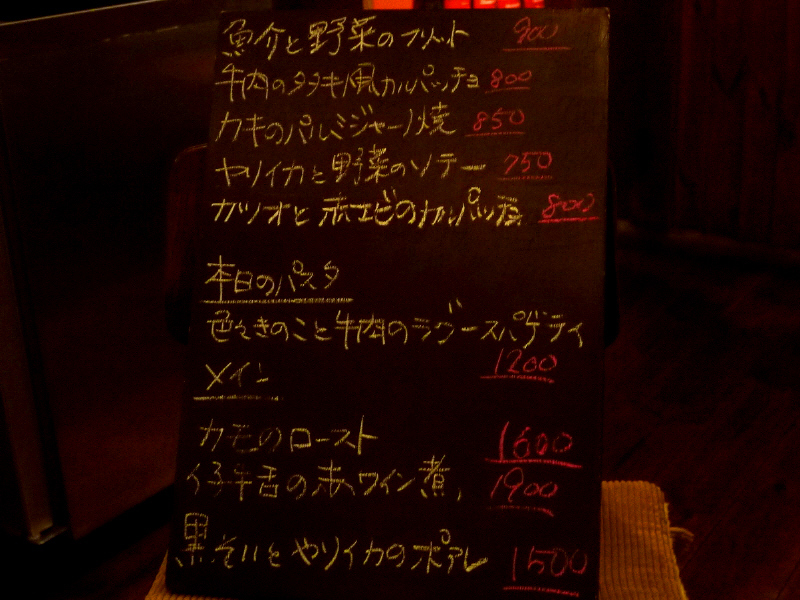 魚介と野菜のフリット 900
牛肉のタタキ風カルパッチョ 800
カキのパルミジャーノ焼 850
ヤリイカと野菜のソテー 750
カツオと赤エビのカルパッチョ 800
本日のパスタ
色々きのこと牛肉のラグースパゲティ
1200
メイン
カモのロースト 1600
仔牛舌の赤ワイン煮 1900
黒そいとやりイカのポアレ 1500